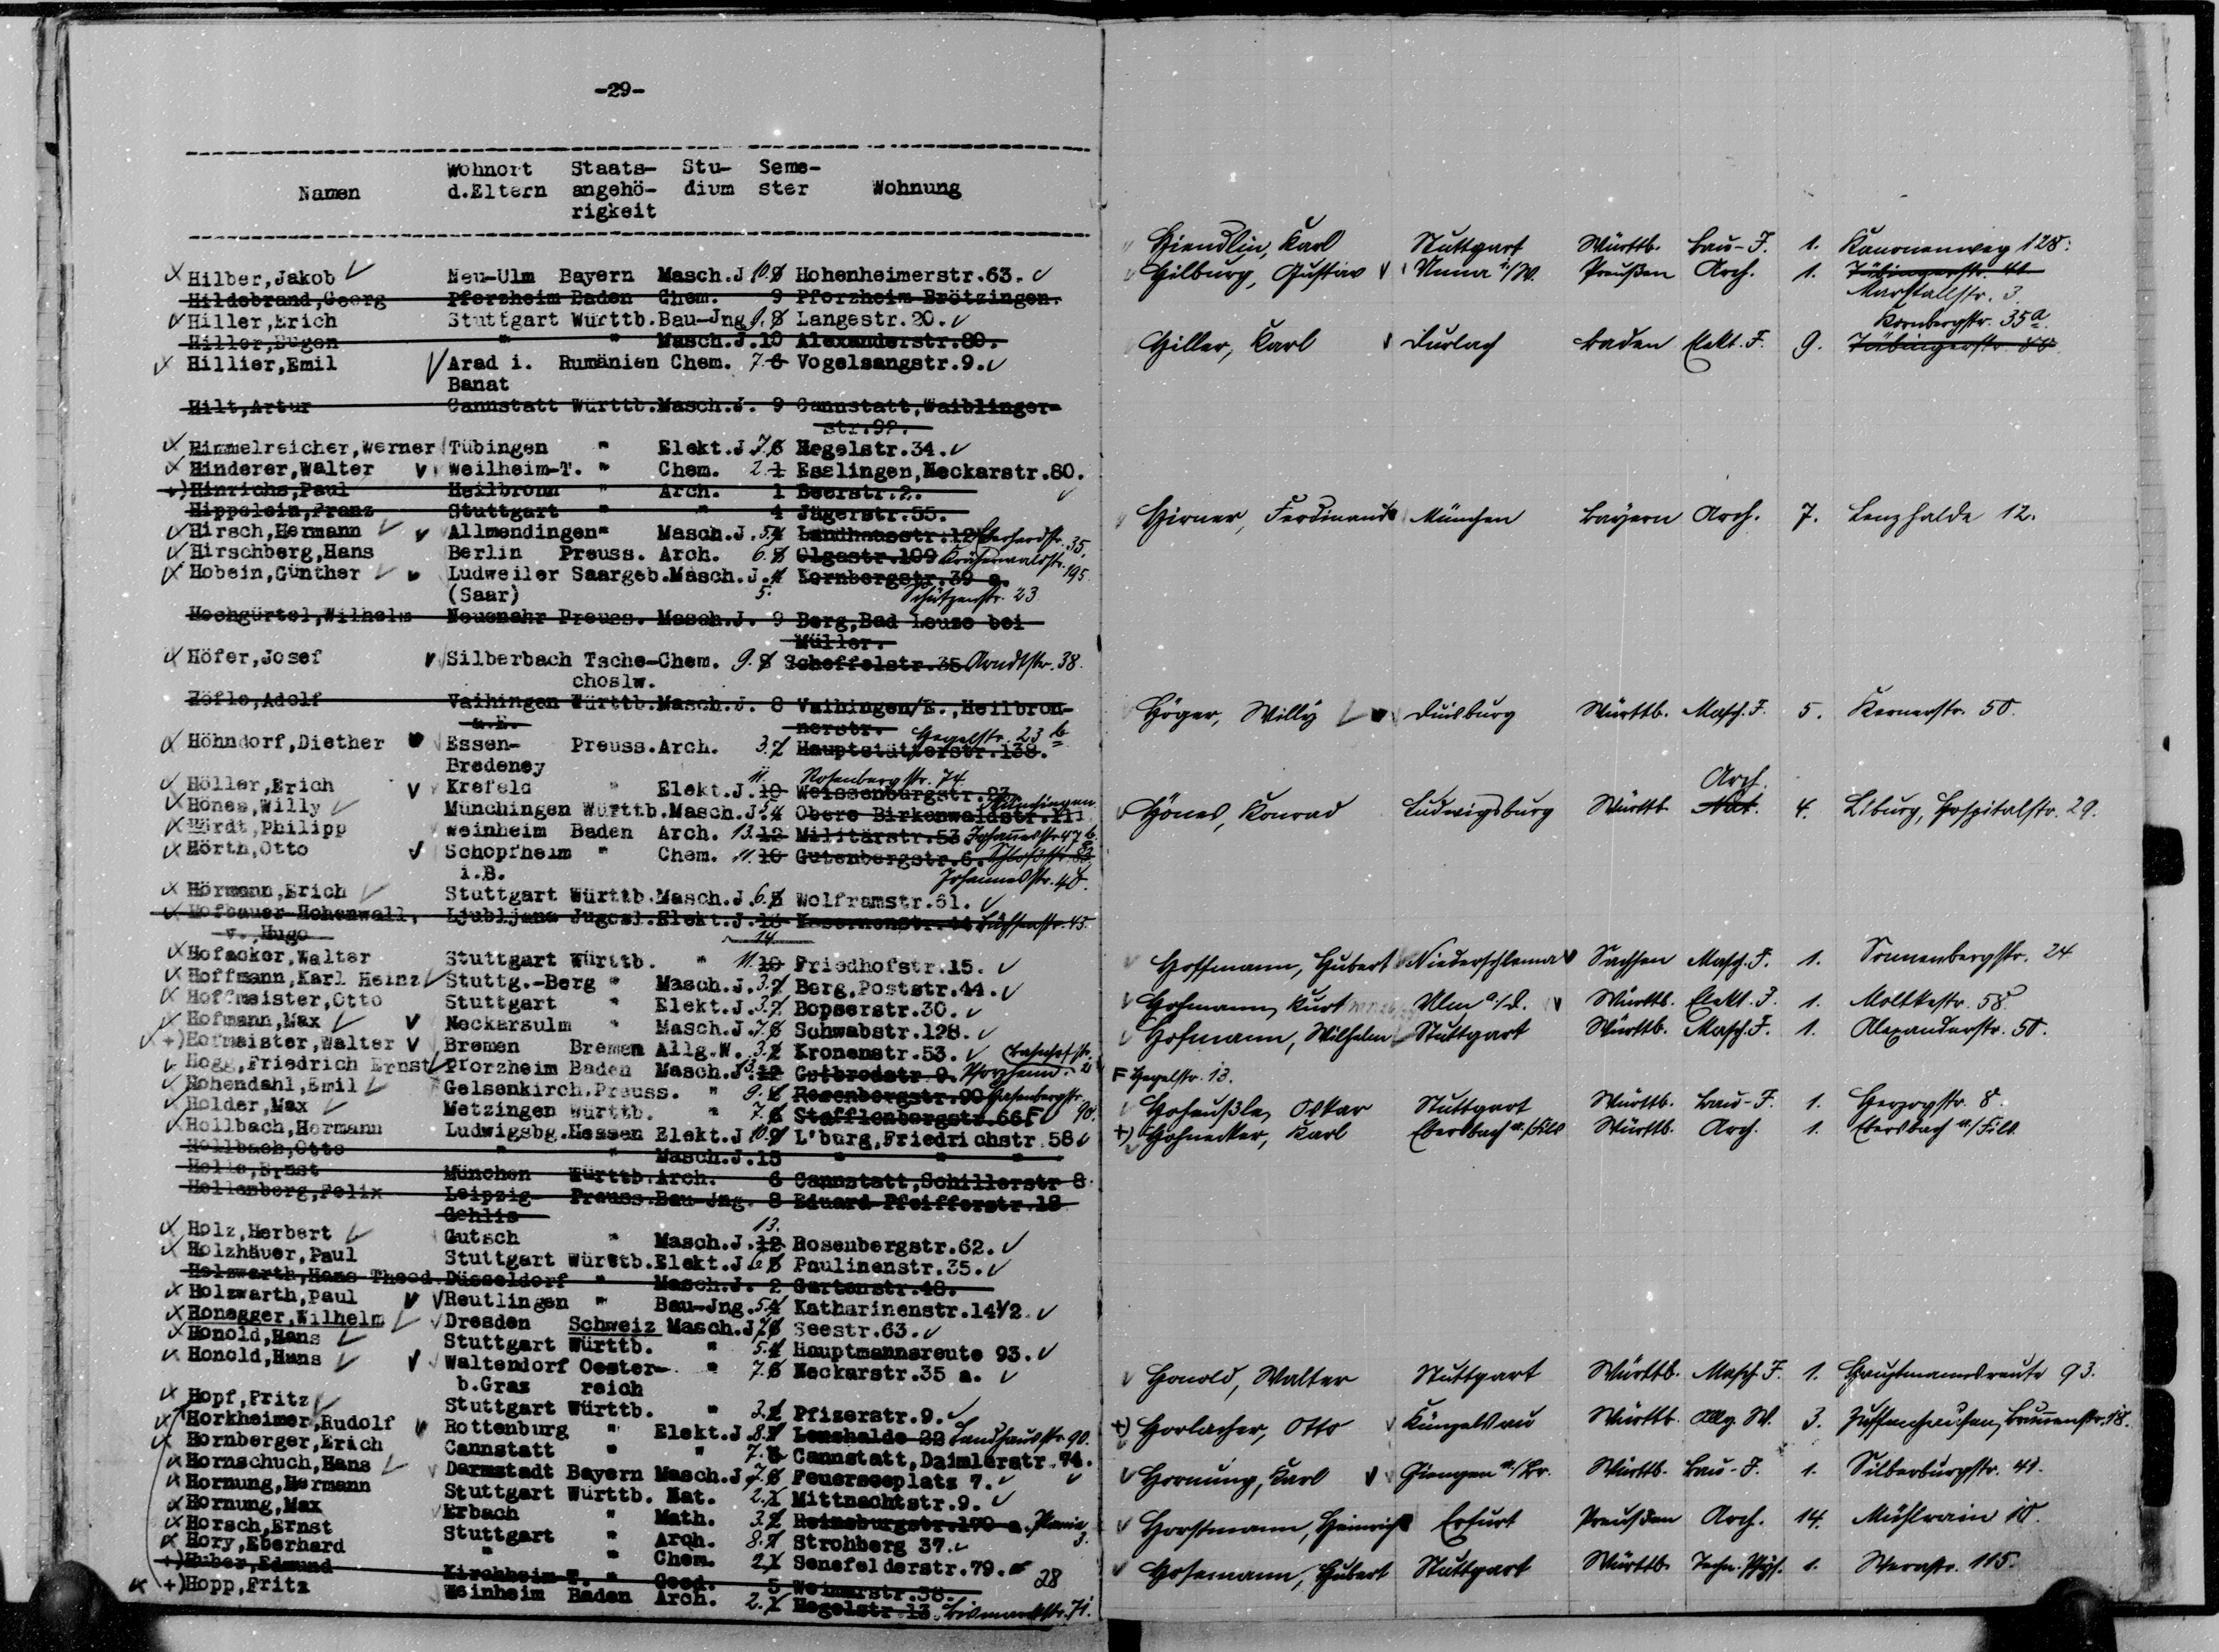 -29-
Wohnort Staats- Stu- Seme-
Namen d.Eltern angehö- dium ster Wohnung
rigkeit
Hilber,Jakob Neu-Ulm Bayern Masch.J 10. 9 Hohenheimerstr.63.
Hildebrand,Georg Pforzheim Baden Chem. 9 Pforzheim-Brötzingen.
Hiller,Erich Stuttgart Württb.Bau-Jng 9. 8 Langestr.20.
Hiller,Eugen " " Masch.J.10 Alexanderstr.80.
Hillier,Emil Arad i. Rumänien Chem. 7. 6 Vogelsangstr.9.
Banat
Hilt,Artur Cannstatt Württb.Masch.J. 9 Cannstatt,Waiblinger-
str.92.
Himmelreicher,Werner Tübingen " Elekt.J 7. 6 Hegelstr.34.
Hinderer,Walter Weilheim-T. " Chem. 2. 1 Esslingen,Neckarstr.80.
+)Hinrichs,Paul Heilbronn " Arch. 1 Beerstr.2.
Hippelein,Franz Stuttgart " " 4 Jägerstr.55.
Hirsch,Hermann Allmendingen" Masch.J. 5. 4 Landhausstr.12 Eberhardstr. 35.
Hirschberg,Hans Berlin Preuss. Arch. 6. 5 Olgastr.109 Kräherwaldstr. 195.
Hobein,Günther Ludweiler Saargeb.Masch.J. 4 Kornbergstr.39 a.
(Saar) 5. Schützenstr. 23
Hochgürtel,Wilhelm Neuenahr Preuss. Masch.J. 9 Berg,Bad Leuze bei
Müller.
Höfer,Josef Silberbach Tsche-Chem. 9. 8 Scheffelstr.35 Arndtstr. 38.
choslw.
Höfle,Adolf Vaihingen Württb.Masch.J. 8 Vaihingen/E.,Heilbron-
a.E. nerstr. Hegelstr. 23 b
Höhndorf,Diether Essen- Preuss.Arch. 3. 2 Hauptstätterstr.138.
Bredeney
11. Rosenbergstr. 74
Höller,Erich Krefeld " Elekt.J.10 Weissenburgstr.23.
Hönes,Willy Münchingen Württb.Masch.J. 5. 4 Obere Birkenwaldstr.111 Münchingen
Hördt,Philipp Weinheim Baden Arch. 13. 12 Militärstr.53 Johannesstr. 47 b.
Hörth,Otto Schopfheim " Chem. 11. 10 Gutenbergstr.6. Schloßstr. 83
i.B. Johannesstr. 48.
Hörmann,Erich Stuttgart Württb.Masch.J. 6. 5 Wolframstr.61.
Hofbauer-Hohenwall, Ljubljana Jugosl.Elekt.J.13 Kasernenstr.44 Büchsenstr. 45.
v.,Hugo 14
Hofacker,Walter Stuttgart Württb. " 11. 10 Friedhofstr.15.
Hoffmann,Karl Heinz Stuttg.-Berg " Masch.J. 3. 2 Berg,Poststr.44.
Hoffmeister,Otto Stuttgart " Elekt.J. 3. 2 Bopserstr.30.
Hofmann,Max Neckarsulm " Masch.J. 7. 6 Schwabstr.128.
+)Hofmeister,Walter Bremen Bremen Allg.W. 3. 2 Kronenstr.53.
Hogg,Friedrich Ernst Pforzheim Baden Masch.J 13. 12 Gutbrodstr 9. Pforzheim. Bahnhofstr. 21
Hohendahl,Emil Gelsenkirch.Preuss. " 9. 8 Rosenbergstr.90 Hasenbergstr. 90.
Holder,Max Metzingen Württb. " 7. 6 Stafflenbergstr.66 F
Hollbach,Hermann Ludwigsbg.Hessen Elekt.J 10. 9 L'burg,Friedrichstr 58
Hollbach,Otto " " Masch.J.15 " " "
Holle,Ernst München Württb.Arch. 6 Cannstatt,Schillerstr 8.
Hollenberg,Felix Leipzig- Preuss.Bau-Jng. 8 Eduard Pfeifferstr.18
Gohlis
13.
Holz,Herbert Gutach " Masch.J.12 Rosenbergstr.62.
Holzhäuer,Paul Stuttgart Württb.Elekt.J 6. 5 Paulinenstr.35.
Holzwarth,Hans Theod.Düsseldorf " Masch.J. 2 Gartenstr.48.
Holzwarth,Paul Reutlingen " Bau-Jng. 5. 4 Katharinenstr.14½.
Honegger,Wilhelm Dresden Schweiz Masch.J 7. 6 Seestr.63.
Honold,Hans Stuttgart Württb. " 5. 4 Hauptmannsreute 93.
Honold,Hans Waltendorf Oester- " 7. 6 Neckarstr.35 a.
b.Graz reich
Hopf,Fritz Stuttgart Württb. " 3. 2 Pfizerstr.9.
Horkheimer,Rudolf Rottenburg " Elekt.J. 8. 7 Lenzhalde 22 Landhausstr. 90.
Hornberger,Erich Cannstatt " " 7. 6 Cannstatt,Daimlerstr.74.
Hornschuch,Hans Darmstadt Bayern Masch.J. 7. 6 Feuerseeplatz 7.
Hornung,Hermann Stuttgart Württb. Nat. 2. 1 Mittnachtstr.9.
Hornung,Max Erbach " Math. 3. 2 Reinsburgstr.170 a. Planie 3.
Horsch,Ernst Stuttgart " Arch. 8. 7 Strohberg 37.
Hory,Eberhard " " Chem. 2. 1 Senefelderstr.79. 28
+)Huber,Edmund Kirchheim-T. " Geod. 5 Weimarstr.38.
+)Hopp,Fritz Weinheim Baden Arch. 2. 1 Hegelstr 13 Bismarckstr. 71.
Hiendlin, Karl Stuttgart Württb. Bau-J. 1. Kanonenweg 128.
Hilburg, Gustav Unna i./W. Preußen Arch. 1. Tübingerstr. 41
Marstallstr. 3.
Kornbergstr. 35a
Hiller, Karl Durlach Baden Elekt. J. 9. Tübingerstr.
Hirner, Ferdinand München Bayern Arch. 7. Lenzhalde 12.
Höger, Willy Duisburg Württb. Masch. J. 5. Kernerstr. 50.
Arch.
Hönes, Konrad Ludwigsburg Württb. Nat. 4. Lburg, Hospitalstr. 29.
Hoffmann, Hubert Niederschlema Sachsen Masch. J. 1. Sonnenbergstr. 24
Hofmann, Kurt Ulm a./D. Württb. Elekt. J. 1. Moltkestr. 58
Hofmann, Wilhelm Stuttgart Württb. Masch. J. 1. Alexanderstr. 50.
F Hegelstr. 13.
Hofäußle, Oskar Stuttgart Württb. Bau-J. 1. Herzogstr. 8
+) Hohnecker, Karl Ebersbach a./Fils Württb. Arch. 1. Ebersbach a./Fils.
Honold, Walter Stuttgart Württb. Masch. J. 1. Hauptmannsreute 93.
+) Horlacher, Otto Künzelsau Württb. Allg. W. 3. Zuffenhausen, Brunnenstr. 18.
Hornung, Karl Giengen a./Br. Württb. Bau-J. 1. Silberburgstr. 41.
Horstmann, Heinrich Erfurt Preußen Arch. 14. Mühlrain 10.
Hosemann, Hubert Stuttgart Württb. Techn. Phys. 1. Werastr. 115.